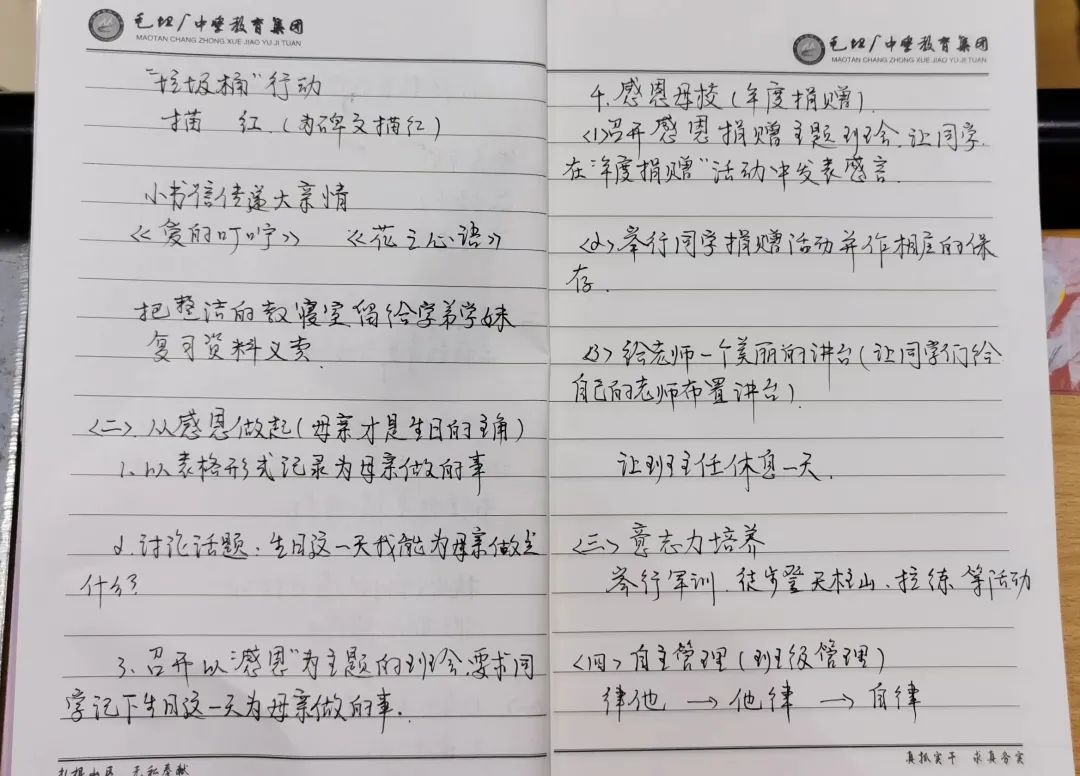 毛坦厂中学教育集团
MAOTAN CHANG ZHONG XUE JIAO YU JI TUAN
“垃圾桶”行动
描 红.(为碑文描红)
小书信传递大亲情
《爱的叮咛》 《花之心语》
把整洁的教寝室留给学弟学妹
复习资料义卖
<二>.从感恩做起(母亲才是生日的主角)
1.以表格形式记录为母亲做的事
2.讨论话题.生日这一天我能为母亲做些
什么?
3.召开以“感恩”为主题的班会.要求同
学记下生日这一天为母亲做的事.
扎根山区 无私奉献
毛坦厂中学教育集团
MAOTAN CHANG ZHONG XUE JIAO YU JI TUAN
4.感恩母校(年度捐赠).
<1>召开感恩捐赠主题班会.让同学.
在“年度捐赠”活动中发表感言.
<2>举行同学捐赠活动并作相应的保
存.
<3>给老师一个美丽的讲台(让同学们给
自己的老师布置讲台).
让班主任休息一天.
<三>意志力培养
举行军训.徒步登天柱山、拉练等活动
<四>自主管理(班级管理)
律他 → 他律 → 自律
真抓实干 求真务实